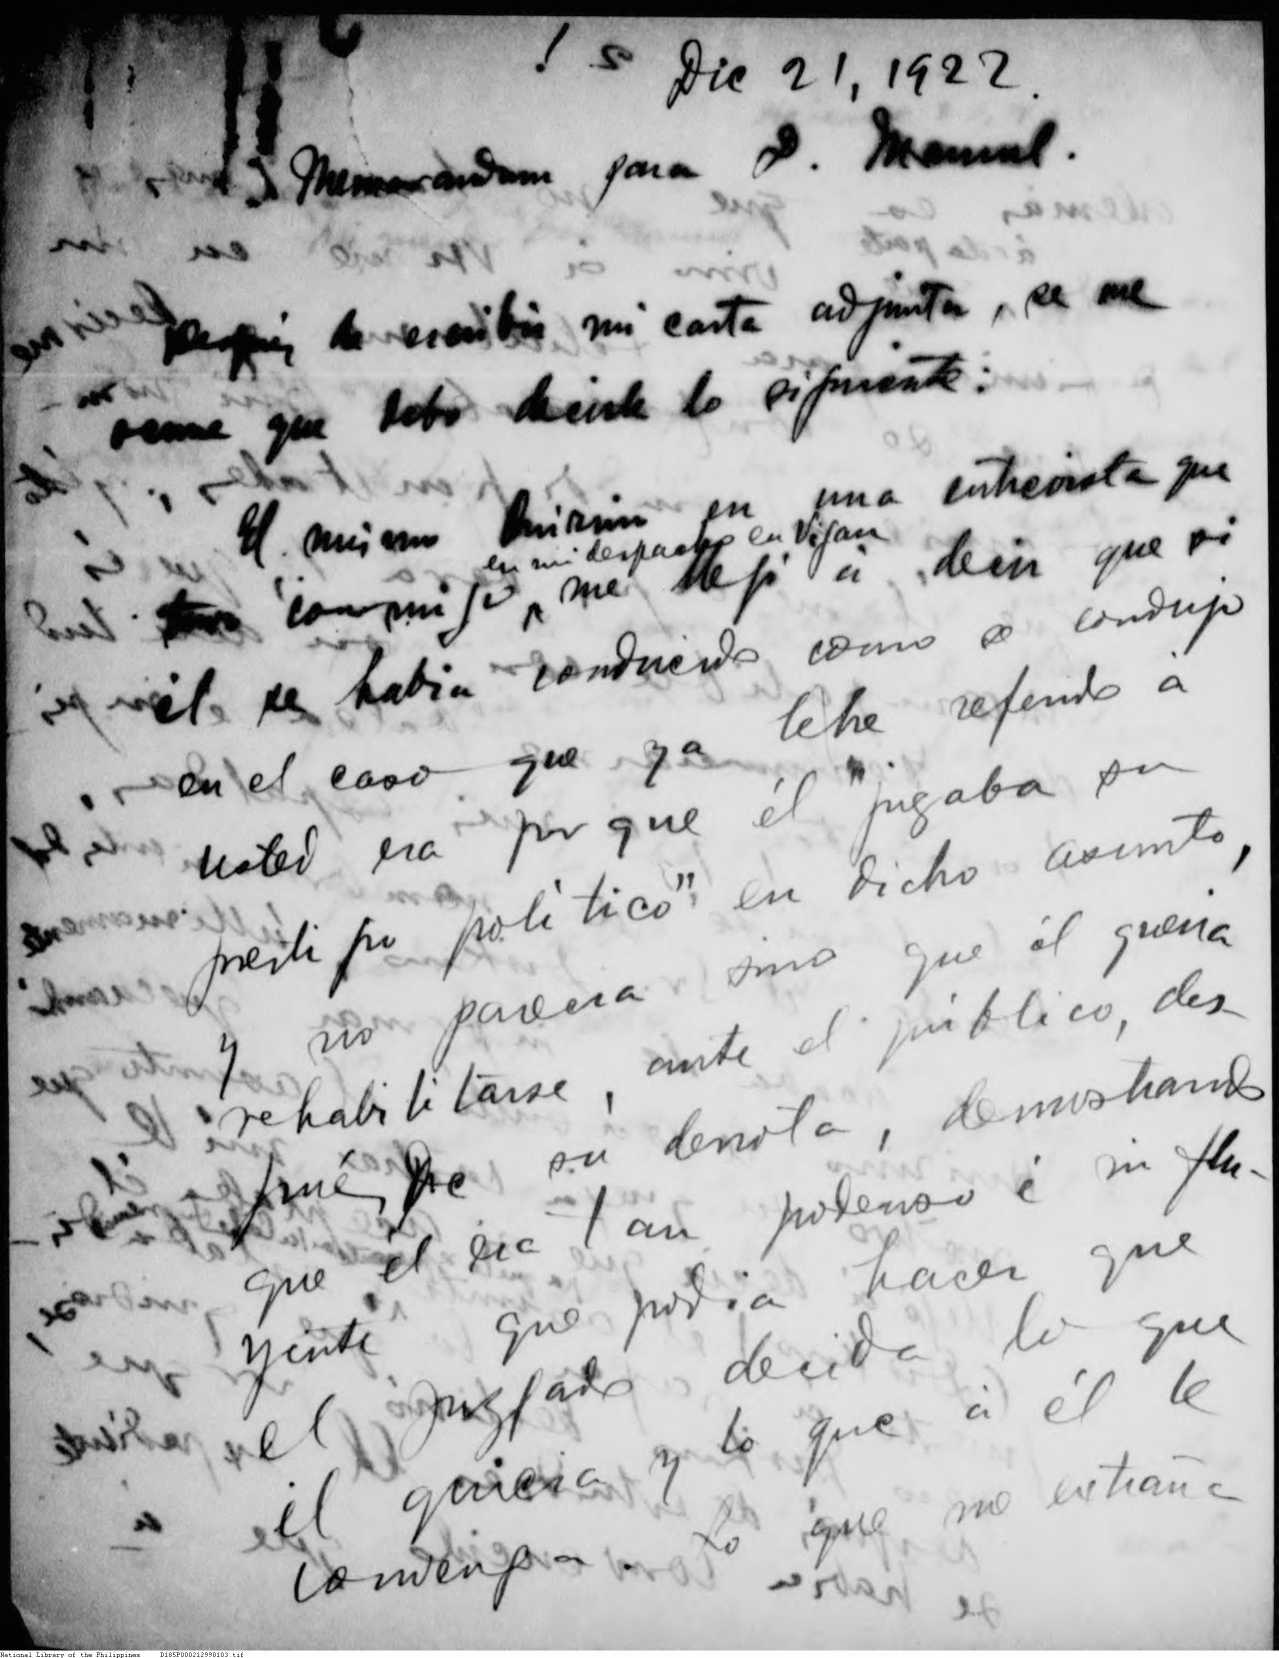 Dic 21, 1922.
Memorandum para D. Manuel.
Después de escribir mi carta adjunta, se me
ocurre que debo decirle lo siguiente:
El mismo Quirino en una entrevista que
en mi despacho en Vigan
tuvo conmigo, me llegó à decir que si
él se habia conducido como se condujo
en el caso que ya le he referido à
usted era por que él "jugaba su
prestigio politico" en dicho asunto,
y no parecia sino que él queria
rehabilitarse, ante el público, des-
pués de su derrota, demostrando
que él era tan poderoso é influ-
yente que podia hacer que
el juzgado decida lo que
él quiera y lo que à él le
convenga. Lo que me extraña
National Library of the Philippines D185P000212990103.tif